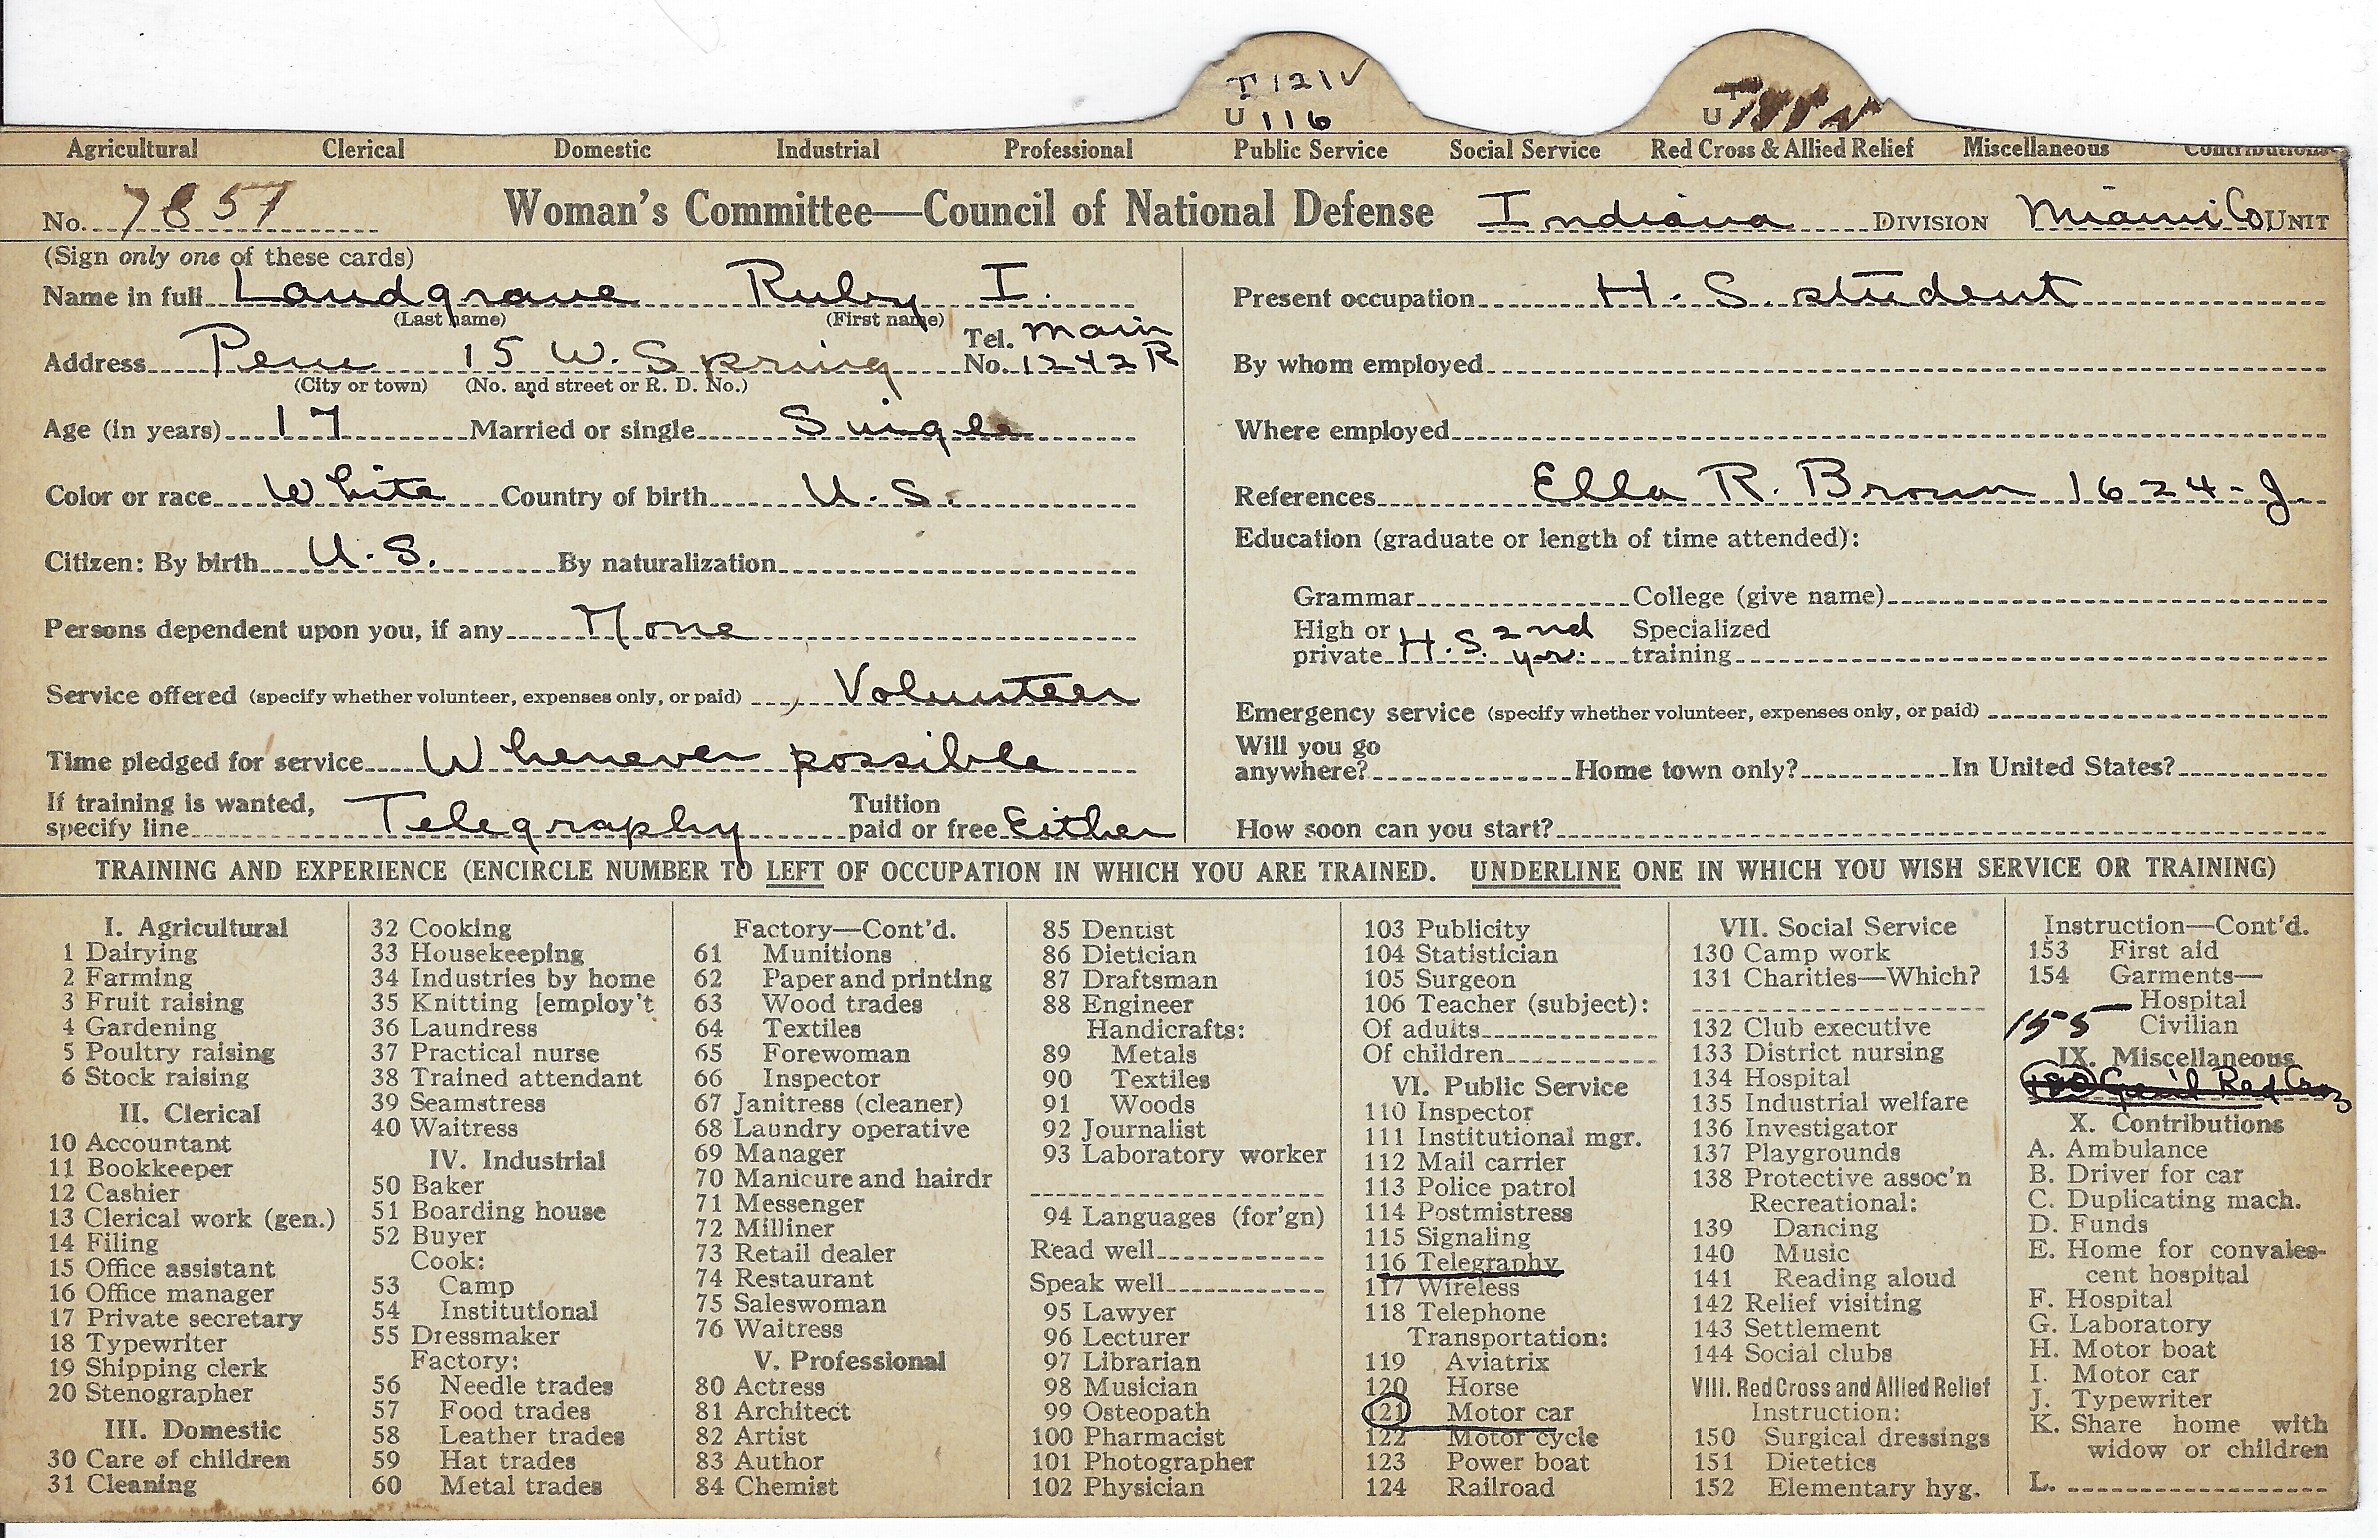 T 121 V
U 116
U
Agricultural Clerical Domestic Industrial Professional Public Service Social Service Red Cross & Allied Relief Miscellaneous Contributions
No. 7857 Woman's Committee—Council of National Defense Indiana DIVISION Miami Co UNIT
(Sign only one of these cards)
Name in full Landgrave Ruby I.
(Last name) (First name)
Address Peru 15 W. Spring Tel. No. Main 1242 R
(City or town) (No. and street or R. D. No.)
Age (in years) 17 Married or single Single
Color or race White Country of birth U.S.
Citizen: By birth U.S. By naturalization
Persons dependent upon you, if any None
Service offered (specify whether volunteer, expenses only, or paid) Volunteer
Time pledged for service Whenever possible
If training is wanted, specify line Telegraphy Tuition paid or free Either
Present occupation H. S. student
By whom employed
Where employed
References Ella R. Brown 1624-J.
Education (graduate or length of time attended):
Grammar College (give name)
High or private H.S. 2nd yr. Specialized training
Emergency service (specify whether volunteer, expenses only, or paid)
Will you go anywhere? Home town only? In United States?
How soon can you start?
TRAINING AND EXPERIENCE (ENCIRCLE NUMBER TO LEFT OF OCCUPATION IN WHICH YOU ARE TRAINED. UNDERLINE ONE IN WHICH YOU WISH SERVICE OR TRAINING)
I. Agricultural
1 Dairying
2 Farming
3 Fruit raising
4 Gardening
5 Poultry raising
6 Stock raising
II. Clerical
10 Accountant
11 Bookkeeper
12 Cashier
13 Clerical work (gen.)
14 Filing
15 Office assistant
16 Office manager
17 Private secretary
18 Typewriter
19 Shipping clerk
20 Stenographer
III. Domestic
30 Care of children
31 Cleaning
32 Cooking
33 Housekeeping
34 Industries by home
35 Knitting [employ't
36 Laundress
37 Practical nurse
38 Trained attendant
39 Seamstress
40 Waitress
IV. Industrial
50 Baker
51 Boarding house
52 Buyer
Cook:
53 Camp
54 Institutional
55 Dressmaker
Factory:
56 Needle trades
57 Food trades
58 Leather trades
59 Hat trades
60 Metal trades
Factory—Cont'd.
61 Munitions
62 Paper and printing
63 Wood trades
64 Textiles
65 Forewoman
66 Inspector
67 Janitress (cleaner)
68 Laundry operative
69 Manager
70 Manicure and hairdr
71 Messenger
72 Milliner
73 Retail dealer
74 Restaurant
75 Saleswoman
76 Waitress
V. Professional
80 Actress
81 Architect
82 Artist
83 Author
84 Chemist
85 Dentist
86 Dietician
87 Draftsman
88 Engineer
Handicrafts:
89 Metals
90 Textiles
91 Woods
92 Journalist
93 Laboratory worker
94 Languages (for'gn)
Read well
Speak well
95 Lawyer
96 Lecturer
97 Librarian
98 Musician
99 Osteopath
100 Pharmacist
101 Photographer
102 Physician
103 Publicity
104 Statistician
105 Surgeon
106 Teacher (subject):
Of adults
Of children
VI. Public Service
110 Inspector
111 Institutional mgr.
112 Mail carrier
113 Police patrol
114 Postmistress
115 Signaling
116 Telegraphy
117 Wireless
118 Telephone
Transportation:
119 Aviatrix
120 Horse
121 Motor car
122 Motor cycle
123 Power boat
124 Railroad
VII. Social Service
130 Camp work
131 Charities—Which?
132 Club executive
133 District nursing
134 Hospital
135 Industrial welfare
136 Investigator
137 Playgrounds
138 Protective assoc'n
Recreational:
139 Dancing
140 Music
141 Reading aloud
142 Relief visiting
143 Settlement
144 Social clubs
VIII. Red Cross and Allied Relief
Instruction:
150 Surgical dressings
151 Dietetics
152 Elementary hyg.
Instruction—Cont'd.
153 First aid
154 Garments—
Hospital
155 Civilian
IX. Miscellaneous
180 Gen'l Red Cross
X. Contributions
A. Ambulance
B. Driver for car
C. Duplicating mach.
D. Funds
E. Home for convales-
cent hospital
F. Hospital
G. Laboratory
H. Motor boat
I. Motor car
J. Typewriter
K. Share home with
widow or children
L.